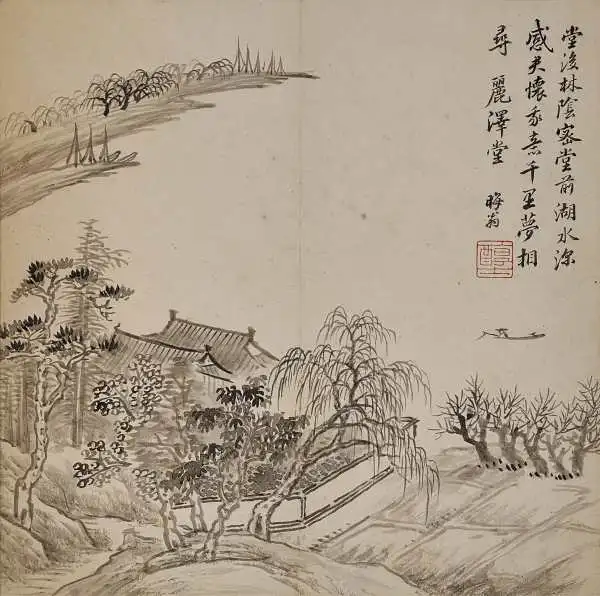 堂後林陰密堂前湖水深
感君懷我意千里夢相
尋 麗澤堂
晦翁